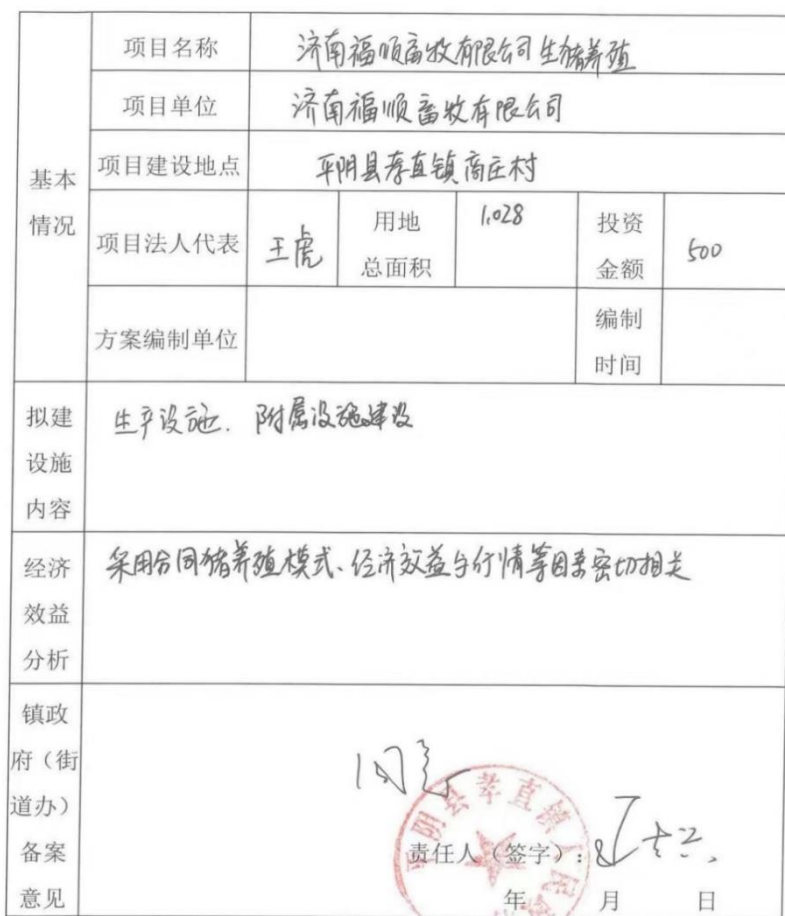 项目名称 济南福顺畜牧有限公司生猪养殖
项目单位 济南福顺畜牧有限公司
项目建设地点 平阴县孝直镇高庄村
基本情况
项目法人代表 王虎 用地总面积 1.028 投资金额 500
方案编制单位 编制时间
拟建设施内容 生产设施、附属设施建设
经济效益分析 采用合同猪养殖模式、经济效益与行情等因素密切相关
镇政府（街道办）备案意见 同意
平阴县孝直镇人民
责任人（签字）：
年 月 日